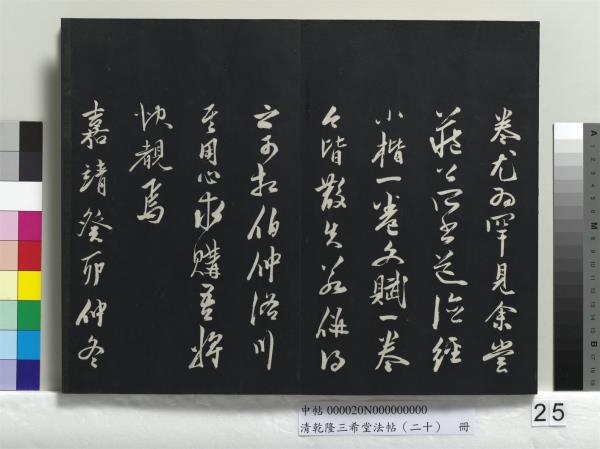 卷尤為罕見余嘗
藏公書道德經
小楷一卷文賦一卷
今皆散失若併得
之可相伯仲川
其用心求購吾將
快覩焉
嘉靖癸卯仲冬
中帖 000020N000000000
清乾隆三希堂法帖（二十） 冊
25